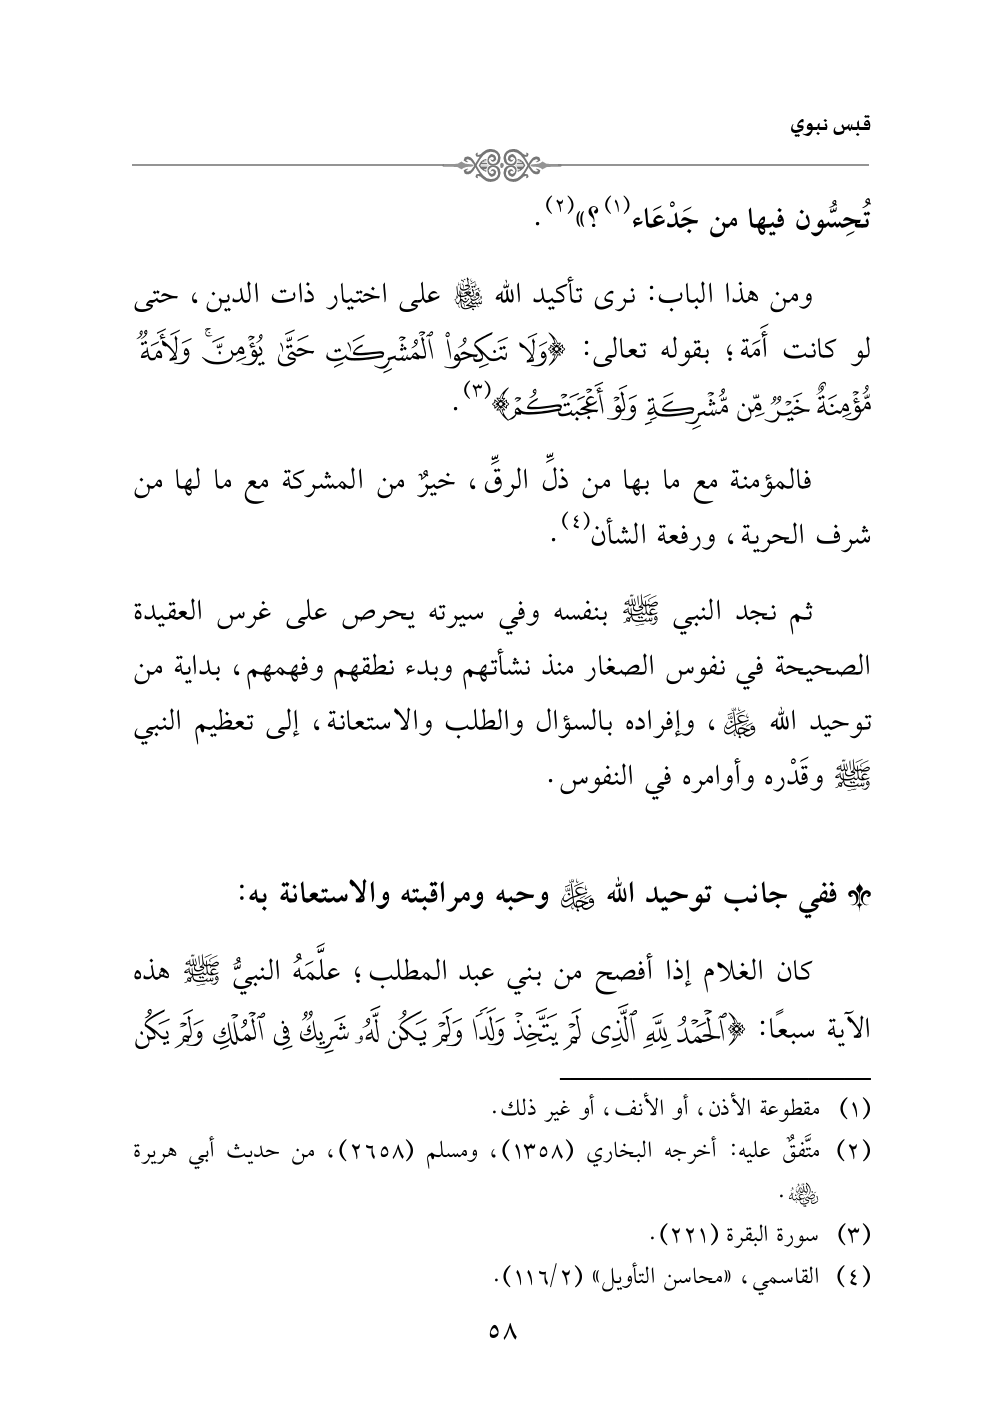 قبس نبوي
تُحِسُّون فيها من جَدْعَاء(١)؟»(٢).
ومن هذا الباب: نرى تأكيد الله ﷻ على اختيار ذات الدين، حتى
لو كانت أَمَة؛ بقوله تعالى: ﴿وَلَا تَنكِحُوا۟ ٱلْمُشْرِكَـٰتِ حَتَّىٰ يُؤْمِنَّ ۚ وَلَأَمَةٌ
مُّؤْمِنَةٌ خَيْرٌ مِّن مُّشْرِكَةٍ وَلَوْ أَعْجَبَتْكُمْ﴾(٣).
فالمؤمنة مع ما بها من ذلِّ الرقِّ، خيرٌ من المشركة مع ما لها من
شرف الحرية، ورفعة الشأن(٤).
ثم نجد النبي ﷺ بنفسه وفي سيرته يحرص على غرس العقيدة
الصحيحة في نفوس الصغار منذ نشأتهم وبدء نطقهم وفهمهم، بداية من
توحيد الله ﷿، وإفراده بالسؤال والطلب والاستعانة، إلى تعظيم النبي
ﷺ وقَدْره وأوامره في النفوس.
ففي جانب توحيد الله ﷿ وحبه ومراقبته والاستعانة به:
كان الغلام إذا أفصح من بني عبد المطلب؛ علَّمَهُ النبيُّ ﷺ هذه
الآية سبعًا: ﴿ٱلْحَمْدُ لِلَّهِ ٱلَّذِى لَمْ يَتَّخِذْ وَلَدًا وَلَمْ يَكُن لَّهُۥ شَرِيكٌ فِى ٱلْمُلْكِ وَلَمْ يَكُن
(١) مقطوعة الأذن، أو الأنف، أو غير ذلك.
(٢) متَّفقٌ عليه: أخرجه البخاري (١٣٥٨)، ومسلم (٢٦٥٨)، من حديث أبي هريرة
رضي الله عنه.
(٣) سورة البقرة (٢٢١).
(٤) القاسمي، «محاسن التأويل» (١١٦/٢).
٥٨